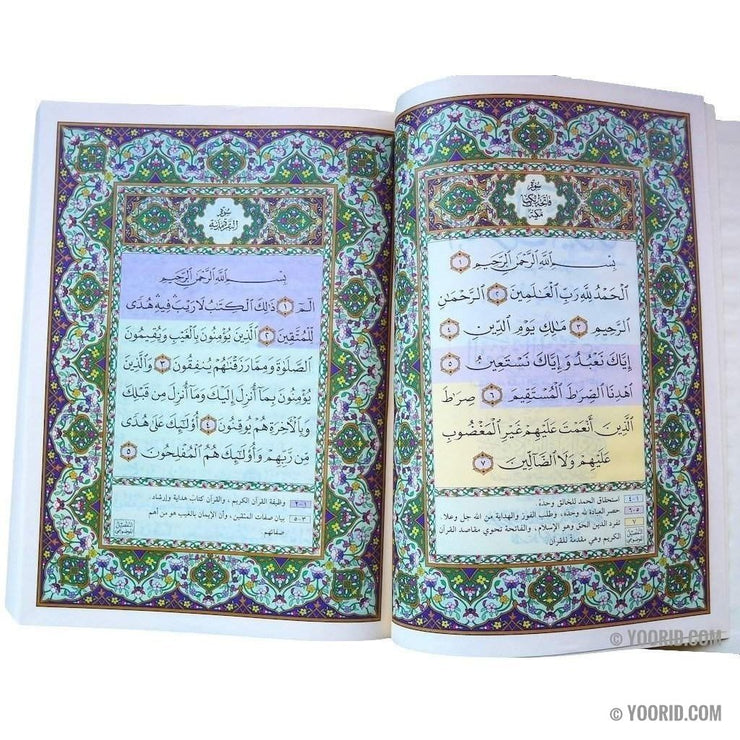 سورة
فاتحة الكتاب
مكية
بِسْمِ اللَّهِ الرَّحْمَٰنِ الرَّحِيمِ ١
الْحَمْدُ لِلَّهِ رَبِّ الْعَٰلَمِينَ ٢ الرَّحْمَٰنِ
الرَّحِيمِ ٣ مَٰلِكِ يَوْمِ الدِّينِ ٤
إِيَّاكَ نَعْبُدُ وَإِيَّاكَ نَسْتَعِينُ ٥
اهْدِنَا الصِّرَٰطَ الْمُسْتَقِيمَ ٦ صِرَٰطَ
الَّذِينَ أَنْعَمْتَ عَلَيْهِمْ غَيْرِ الْمَغْضُوبِ
عَلَيْهِمْ وَلَا الضَّآلِّينَ ٧
١-٤ استحقاق الحمد للخالق وحده.
٥-٦ حصر العبادة لله وحده، وطلب الفوز والهداية من الله جل وعلا.
٧ تفرد الدين الحق وهو الإسلام، والفاتحة تحوي مقاصد القرآن
الكريم وهي مقدمة للقرآن.
سورة
البقرة مدنية
بِسْمِ اللَّهِ الرَّحْمَٰنِ الرَّحِيمِ
الٓمٓ ١ ذَٰلِكَ الْكِتَٰبُ لَا رَيْبَ فِيهِ هُدًى
لِّلْمُتَّقِينَ ٢ الَّذِينَ يُؤْمِنُونَ بِالْغَيْبِ وَيُقِيمُونَ
الصَّلَوٰةَ وَمِمَّا رَزَقْنَٰهُمْ يُنفِقُونَ ٣ وَالَّذِينَ
يُؤْمِنُونَ بِمَآ أُنزِلَ إِلَيْكَ وَمَآ أُنزِلَ مِن قَبْلِكَ
وَبِالْءَاخِرَةِ هُمْ يُوقِنُونَ ٤ أُو۟لَٰٓئِكَ عَلَىٰ هُدًى
مِّن رَّبِّهِمْ وَأُو۟لَٰٓئِكَ هُمُ الْمُفْلِحُونَ ٥
١-٢ وظيفة القرآن الكريم، والقرآن كتاب هداية وإرشاد.
٣-٥ بيان صفات المتقين، وأن الإيمان بالغيب هو من أهم
صفاتهم.
© YOORID.COM
© YOORID.COM